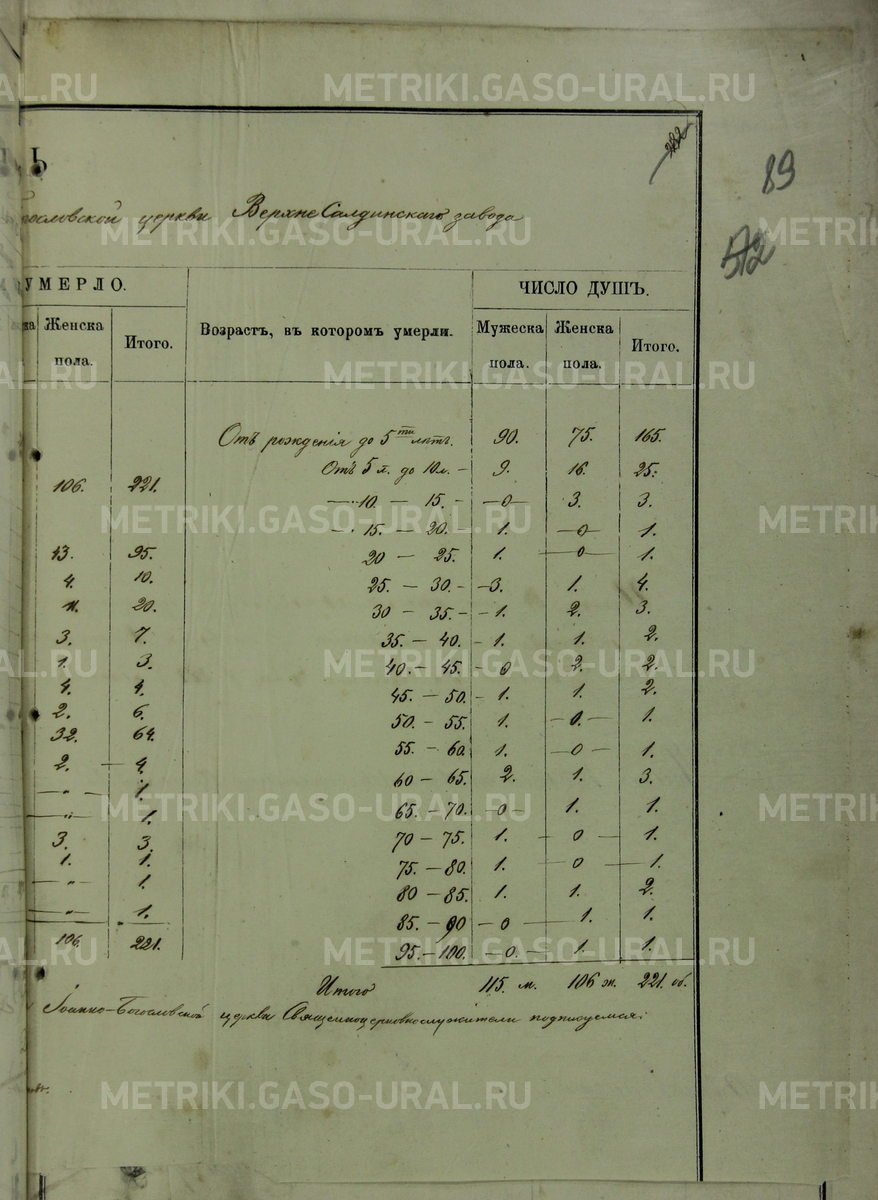 METRIKI.GASO-URAL.RU
Ь
282
89
572
ословской церкви ВерхнеСалдинскаго завода
УМЕРЛО. ЧИСЛО ДУШЪ.
ка Женска пола. Итого. Возрастъ, въ которомъ умерли. Мужеска пола. Женска пола. Итого.
Отъ рожденія до 5ти лѣтъ. 90. 75. 165.
Отъ 5 л. до 10 л. – 9. 16. 25.
106. 221.
— 10. — 15. – — 0 — 3. 3.
— 15. — 20. – 1. — 0 — 1.
13. 95. 20 — 25. 1. — 0 — 1.
4. 10. 25. — 30. – 3. 1. 4.
11. 20. 30 — 35. – 1. 2. 3.
3. 7. 35. — 40. – 1. 1. 2.
1. 3. 40. — 45. – 0 2. 2.
4. 4. 45. — 50. – 1. 1. 2.
2. 6. 50. – 55. 1. — 0. — 1.
32. 64. 55. — 60. 1. — 0 — 1.
2. — 4. 60 — 65. 2. 1. 3.
— „ — 1. 65. – 70. – 0 – 1. 1.
— „ — 1. 70 – 75. 1. — 0 — 1.
3. 3.
1. 1. 75. – 80. 1. — 0 — 1.
— „ — 1. 80 – 85. 1. 1. 2.
— „ — 1. 85. – 90 – 0 — 1. 1.
106. 221. 95. – 100. – 0. – 1. 1.
Итого 115. м. 106 ж. 221. об.
Іоанно-Богословской церкви Священноцерковнослужители подписуемся: